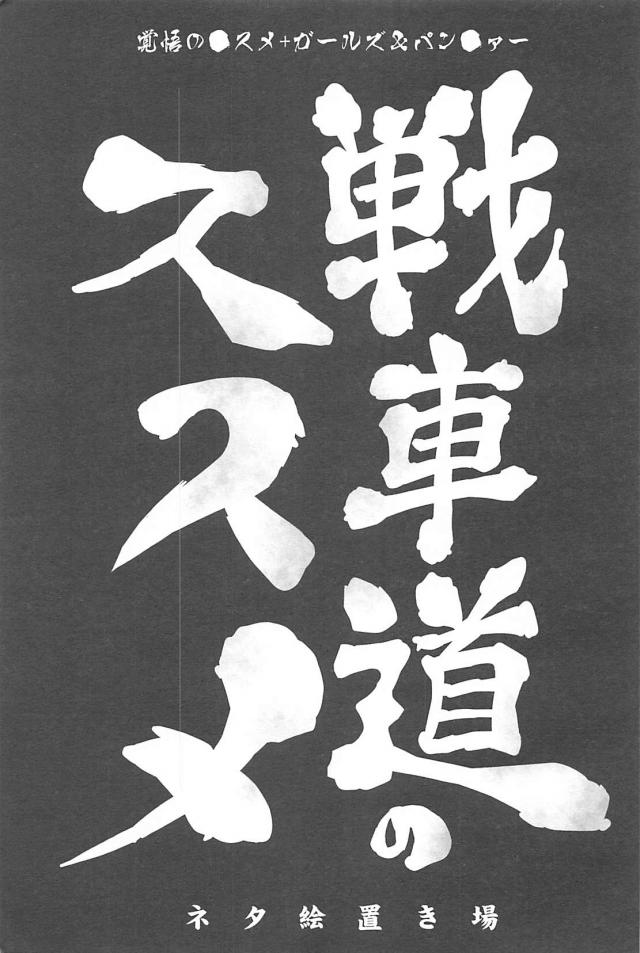 覚悟の●スメ+ガールズ&パン●ァー
戦車道の
ススメ
ネタ絵置き場